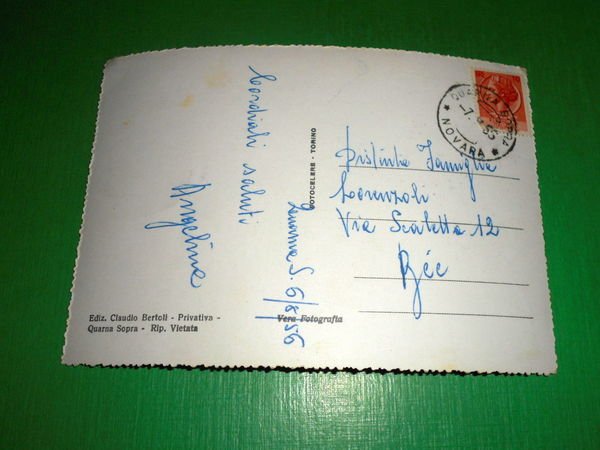 Cordiali saluti
Angelina
Quarna S. 6/8/56
FOTOCELERE - TORINO
Distinta Famiglia
Lorenzoli
Via Scaletta 12
Ediz. Claudio Bertoli - Privativa -
Quarna Sopra - Rip. Vietata
Vera Fotografia
QUARNA SOPRA
* NOVARA *